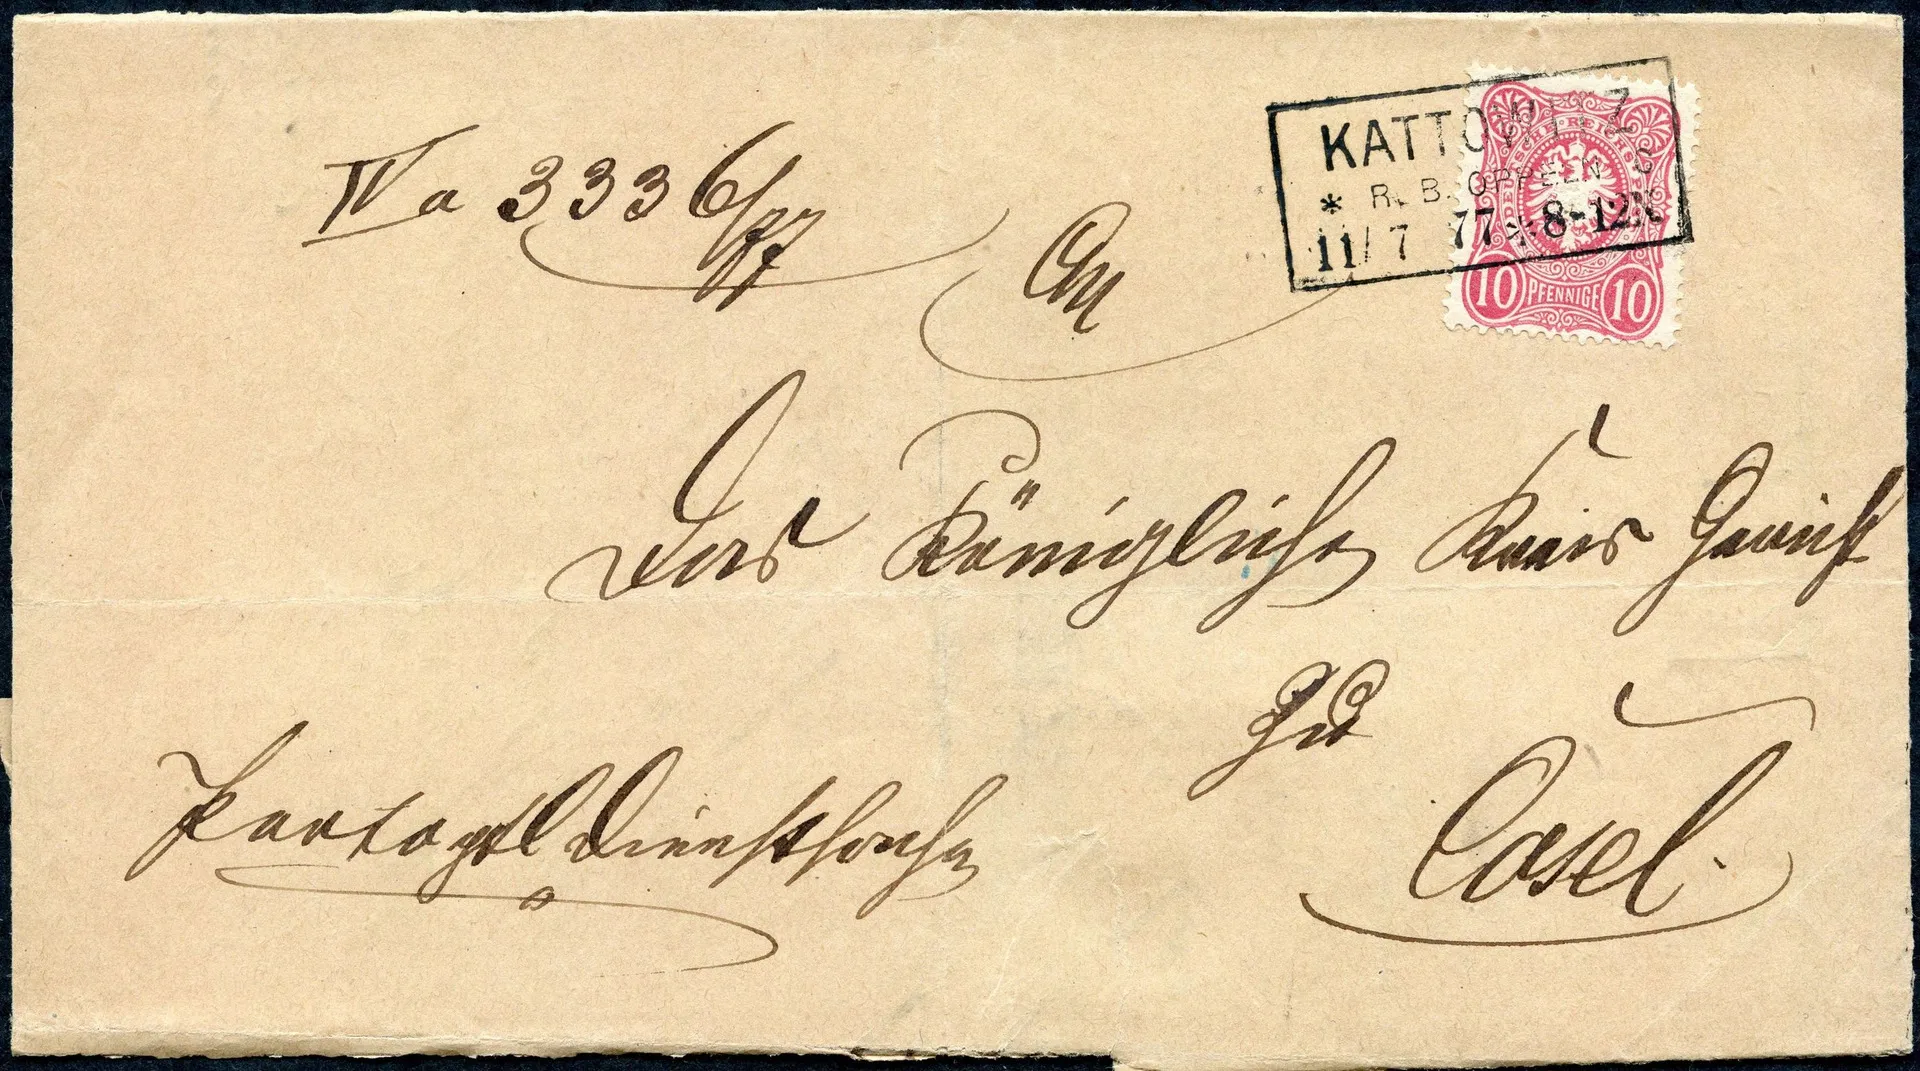 IVa 3336/77
KATTOWITZ
* R. B. OPPELN
11/7 77 * 8-12N
DEUTSCHE REICHSPOST
10 PFENNIGE 10
An
Das Königliche Kreis Gericht
zu
Cosel.
Portopfl Dienstsache